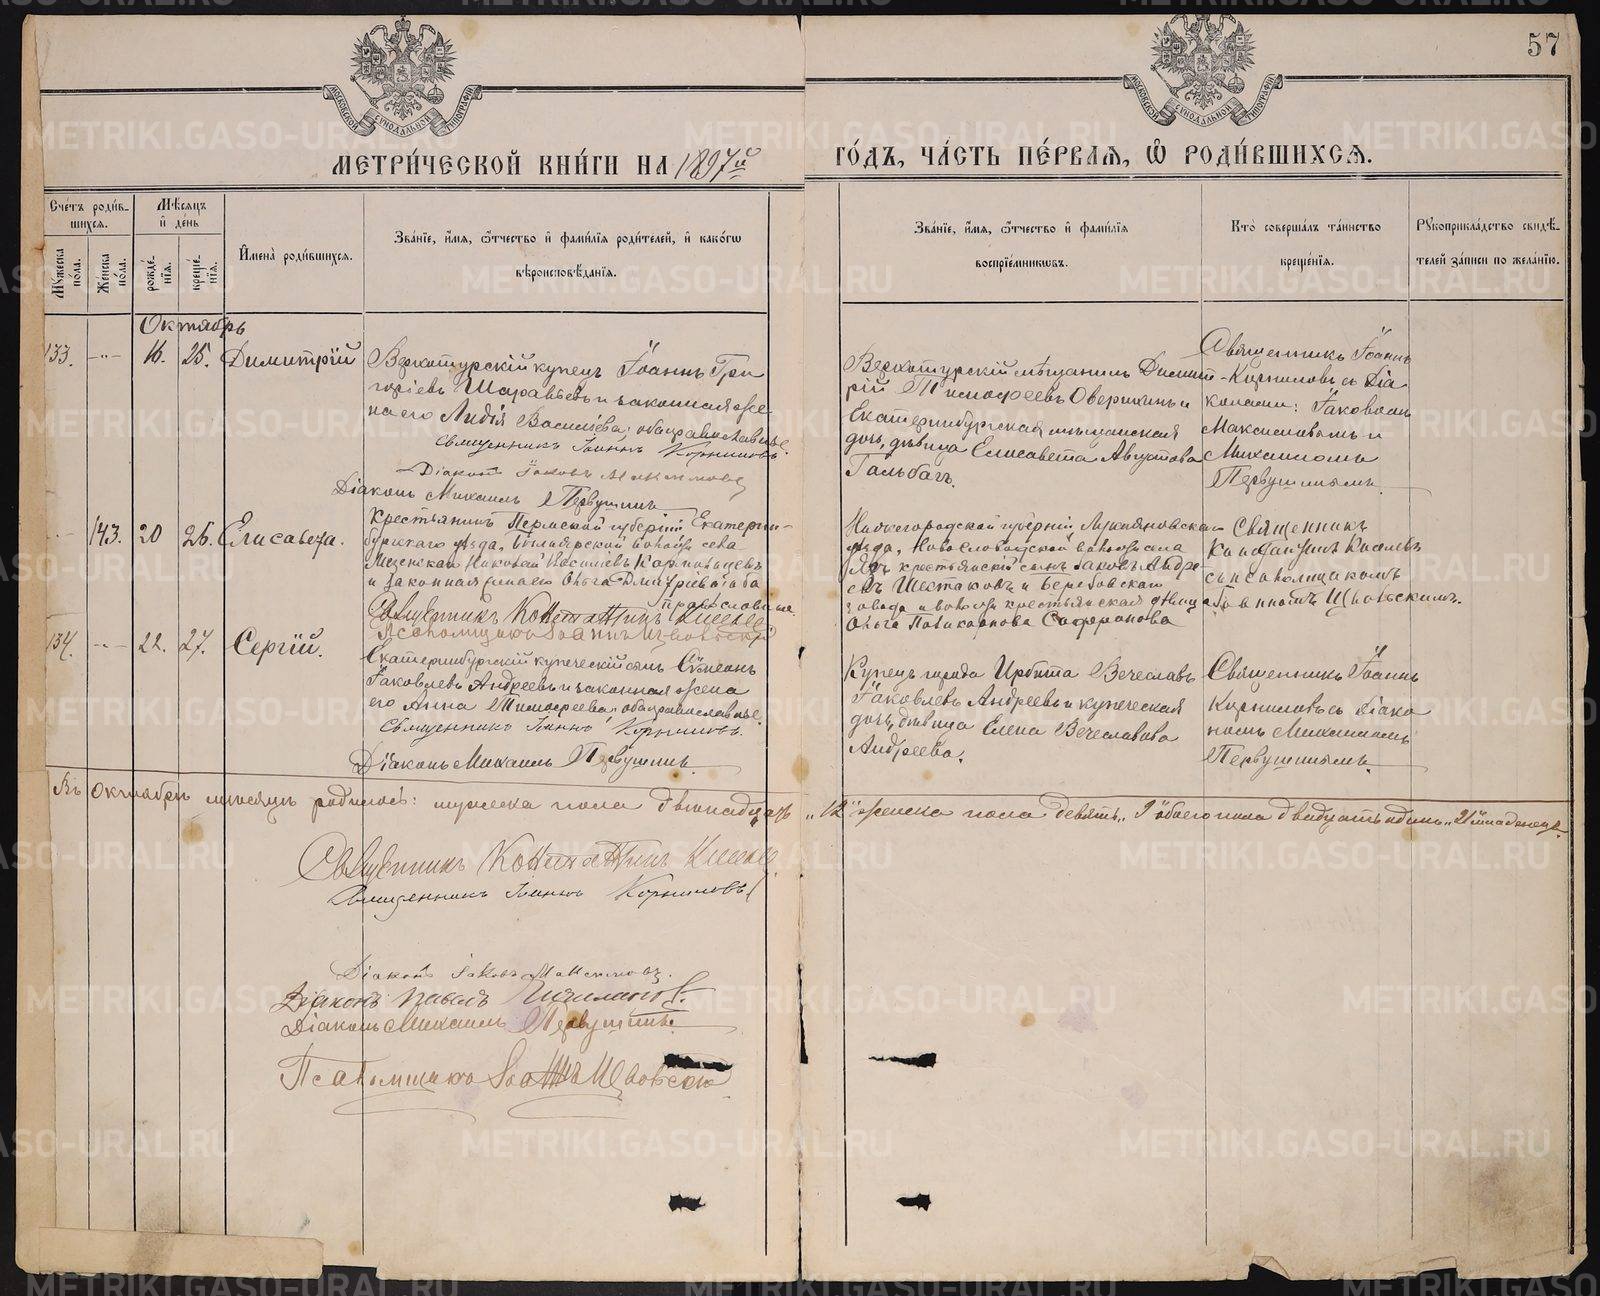 57
МОСКОВСКОЙ СѴНОДАЛЬНОЙ ТИПОГРАФІИ
МОСКОВСКОЙ СѴНОДАЛЬНОЙ ТИПОГРАФІИ
МЕТРИ́ЧЕСКОЙ КНИ́ГИ НА 1897й
ГО́ДЪ, ЧА́СТЬ ПЕ́РВАѦ, Ѡ҆ РОДИ́ВШИХСѦ.
Сче́тъ роди́в-
шихсѧ.
Мѣ́сѧцъ
и҆ де́нь
Мꙋ́жеска
по́ла.
Же́нска
по́ла.
рожде́-
нїѧ.
креще́-
нїѧ.
И҆мена̀ роди́вшихсѧ.
Зва́нїе, и҆́мѧ, ѻ҆́тчество и҆ фами́лїѧ роди́телей, и҆ како́гѡ
вѣроисповѣ́данїѧ.
Зва́нїе, и҆́мѧ, ѻ҆́тчество и҆ фами́лїѧ
воспрїе́мникѡвъ.
Кто̀ соверша́лъ та́инство
креще́нїѧ.
Рꙋкоприкла́дство свидѣ́-
телей за́писи по жела́нїю.
Октябрь
133. -„- 16. 25. Димитрій
Верхотурскій купецъ Іоаннъ Гри
горіевъ Шаравьевъ и законная же-
на его Лидія Васильева, оба православные.
Священникъ Іоаннъ Корниловъ.
Діаконъ Іаковъ Максимовъ
Діаконъ Михаилъ Первушинъ
Верхотурскій мѣщанинъ Димит-
рій Тимофеевъ Оверинъ и
Екатеринбургская мѣщанская
дочь, дѣвица Елисавета Августова
Гальбахъ.
Священникъ Іоаннъ
Корниловъ съ діа
конами: Іаковомъ
Максимовымъ и
Михаиломъ
Первушинымъ.
143. 20 26. Елисавета.
Крестьянинъ Пермской губерніи Екатерин-
бургскаго уѣзда, волости села
Мезенскаго Николай Василіевъ Карповъ
и законная жена его Ольга Дмитріева, оба
православные
Священникъ Константинъ
Псаломщикъ Іоаннъ
Нижегородской губерніи, Лукояновскаго
уѣзда, Новослободской волости села
крестьянскій сынъ Іаковъ Андре-
евъ Шестаковъ и Березовскаго
завода и волости крестьянская дѣвица
Ольга Поликарпова Сафронова
Священникъ
Константинъ
съ псаломщикомъ
Іоанномъ
134. -„- 22. 27. Сергій.
Екатеринбургскій купеческій сынъ Симеонъ
Іаковлевъ Андреевъ и законная жена
его Анна Тимофеева, оба православные.
Священникъ Іоаннъ Корниловъ.
Діаконъ Михаилъ Первушинъ.
Купецъ города Ирбита Вечеславъ
Іаковлевъ Андреевъ и купеческая
дочь, дѣвица Елена Вечеславова
Андреева.
Священникъ Іоаннъ
Корниловъ съ діако
номъ Михаиломъ
Первушинымъ.
Въ Октябрѣ мѣсяцѣ родилось: мужска пола двѣнадцать „12“ женска пола девять „9“ обоего пола двадцать одинъ „21“ младенецъ.
Священникъ Константинъ
Священникъ Іоаннъ Корниловъ
Діаконъ Іаковъ Максимовъ.
Діаконъ Павелъ
Діаконъ Михаилъ Первушинъ.
Псаломщикъ Іоаннъ
METRIKI.GASO-URAL.RU